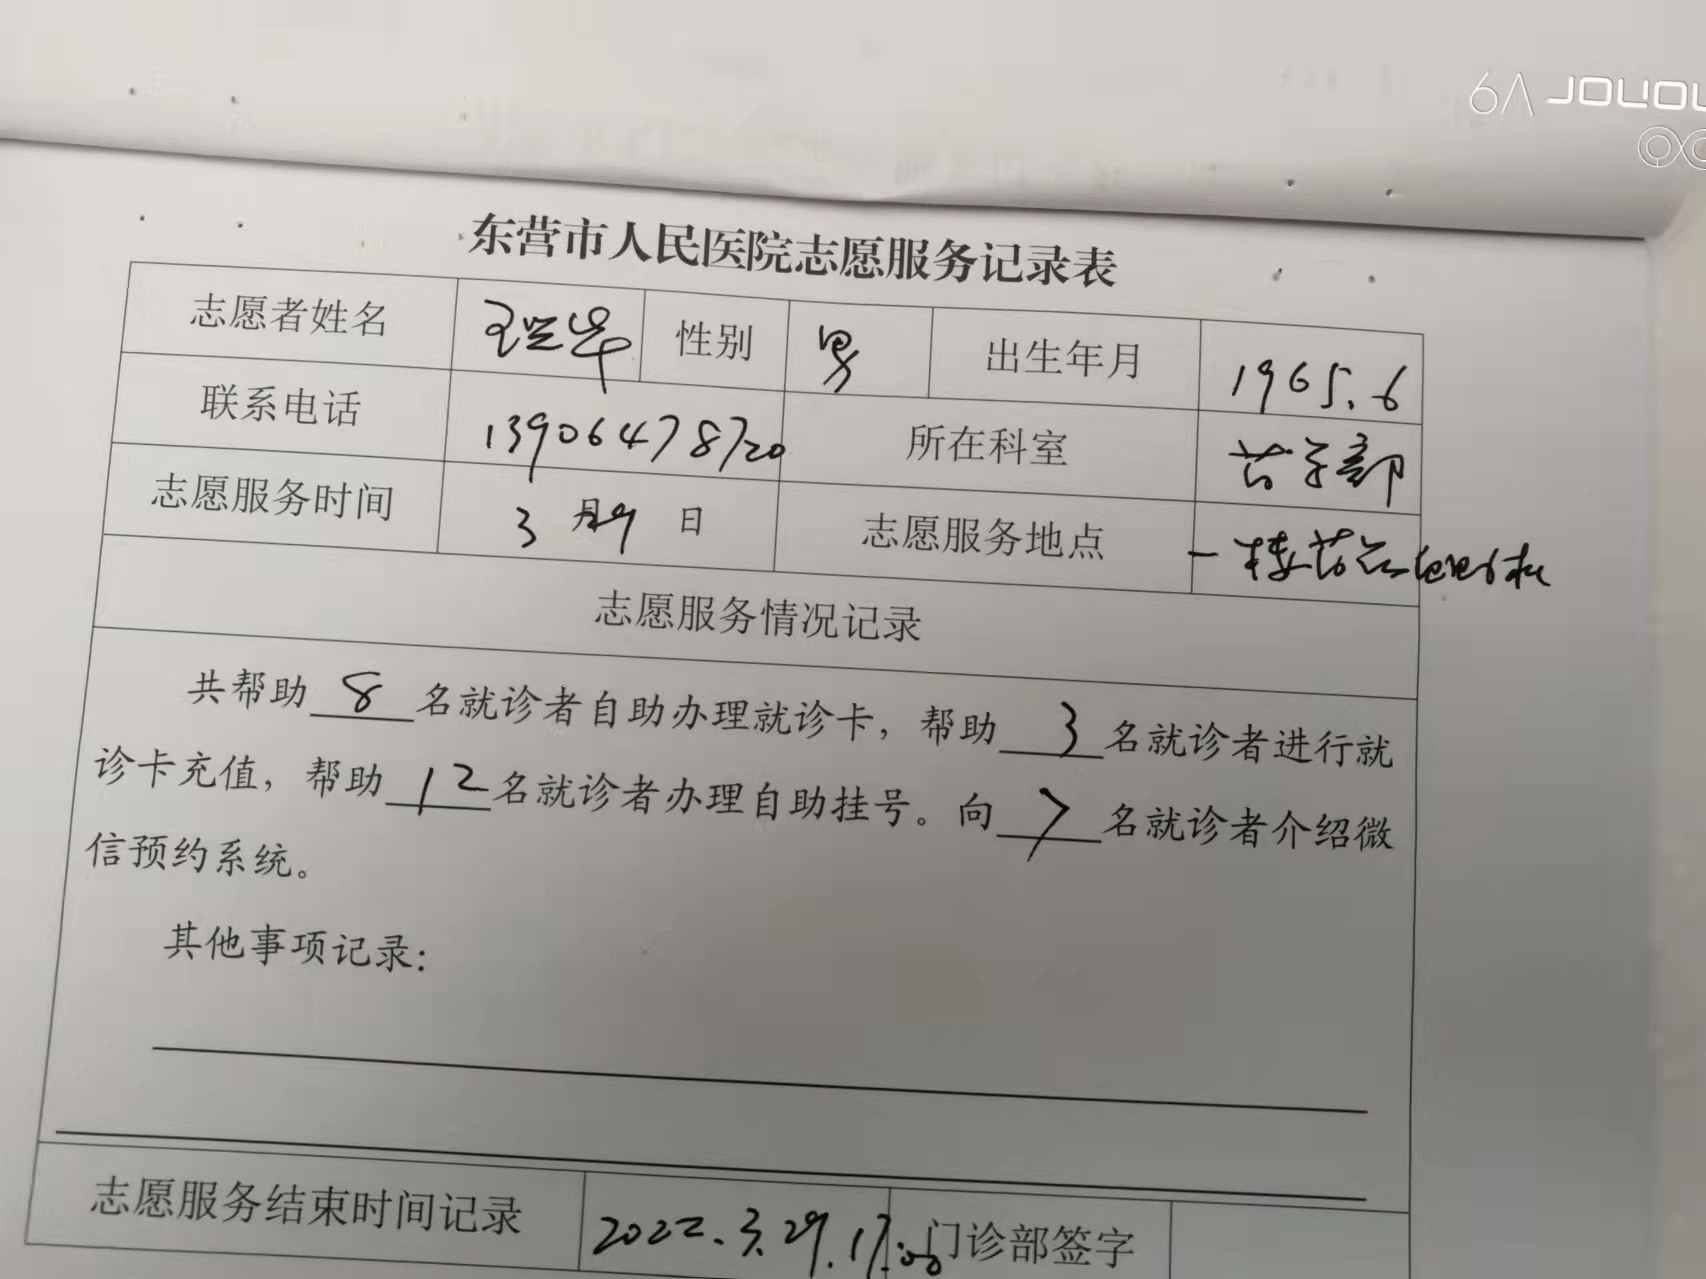 HONOR V9
东营市人民医院志愿服务记录表
志愿者姓名 王兰华 性别 男 出生年月 1965.6
联系电话 13906478720 所在科室 药学部
志愿服务时间 3月29日 志愿服务地点 一楼药品
志愿服务情况记录
共帮助8名就诊者自助办理就诊卡，帮助3名就诊者进行就
诊卡充值，帮助12名就诊者办理自助挂号。向7名就诊者介绍微
信预约系统。
其他事项记录：
志愿服务结束时间记录 2022.3.29.17:00 门诊部签字